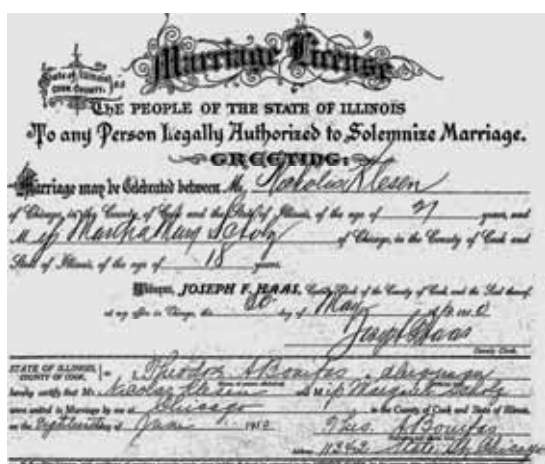 Marriage License
State of Illinois
COOK COUNTY.
THE PEOPLE OF THE STATE OF ILLINOIS
To any Person Legally Authorized to Solemnize Marriage.
GREETING:
Marriage may be Celebrated between Mr. Klesen
of Chicago, in the County of Cook and the State of Illinois, of the age of 21 years, and
Miss Martha Mary Scholz of Chicago, in the County of Cook and
State of Illinois, of the age of 18 years.
Witness, JOSEPH F. HAAS, County Clerk of the County of Cook, and the Seal thereof,
at my office in Chicago, this day of May
Joseph F. Haas
County Clerk.
STATE OF ILLINOIS, COUNTY OF COOK, Theodor A Bonifas a clergyman
hereby certify that Mr. Nicolas Klesen and Miss Margaret Scholz
were united in Marriage by me at Chicago in the County of Cook and State of Illinois,
on the Eighteenth of June 1910
Theo. A Bonifas
Address 11342 State St. Chicago